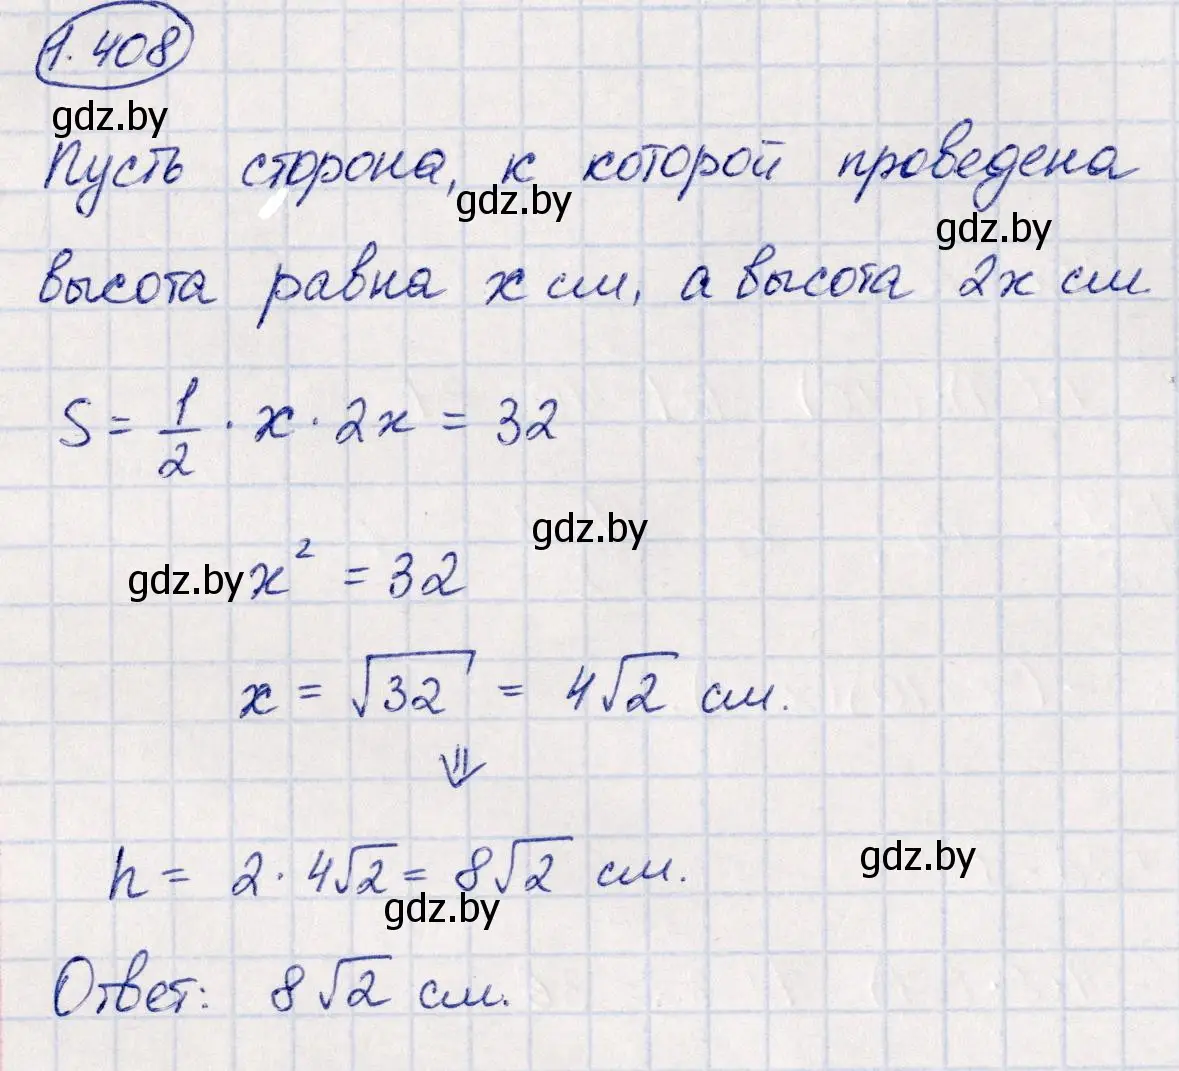 1.408
gdz.by
Пусть сторона, к которой проведена
gdz.by
gdz.by
высота равна x см, а высота 2x см.
S = 1/2 · x · 2x = 32
gdz.by
gdz.by x² = 32
x = √32 = 4√2 см.
⇓
h = 2 · 4√2 = 8√2 см.
gdz.by
gdz.by
Ответ: 8√2 см.